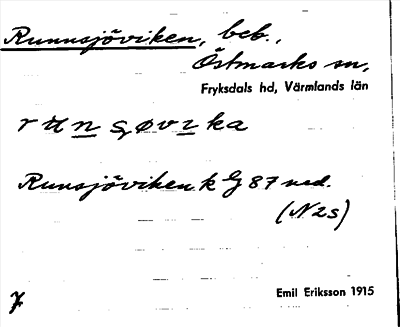 Runnsjöviken, beb.,
Östmarks sn,
Fryksdals hd, Värmlands län
Runnsjöviken k 87 ned.
(N2s)
Emil Eriksson 1915